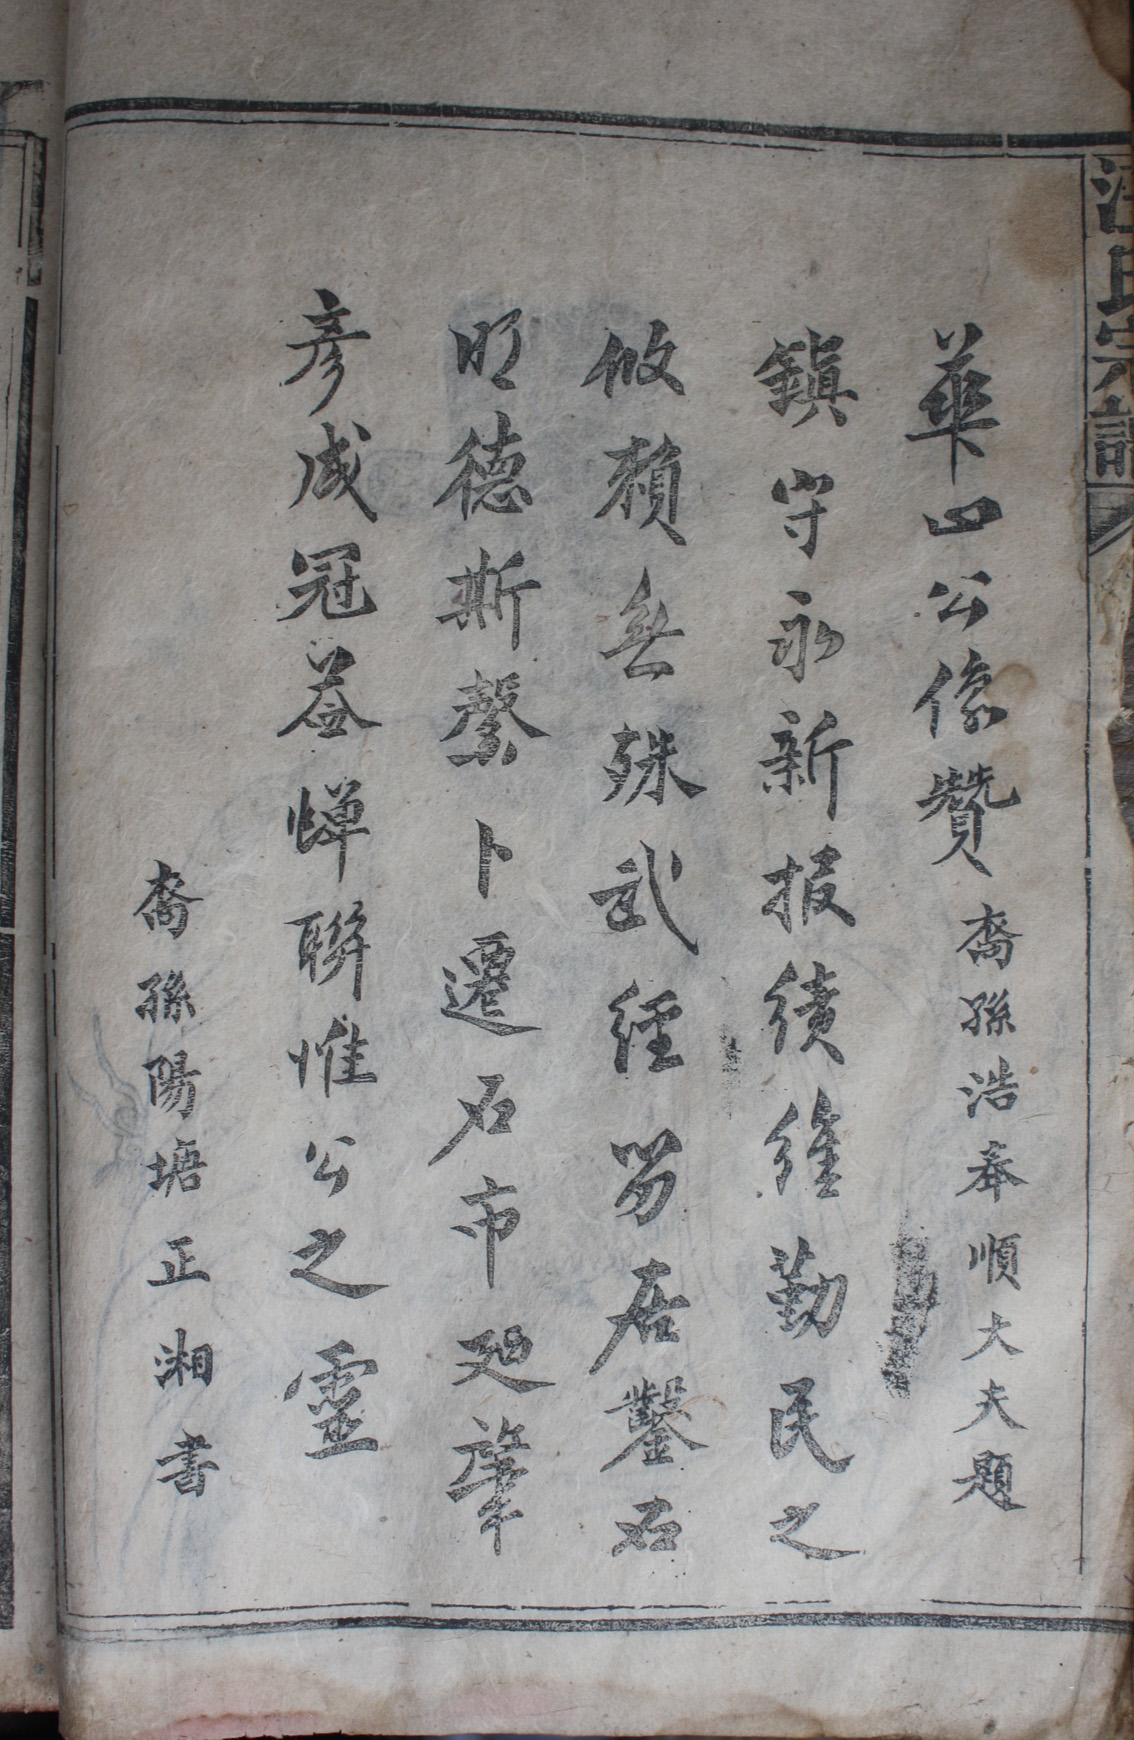 汪氏宗譜
華四公像贊 裔孫浩奉順大夫題
鎮守永新報績維勤民之
攸賴無殊武經芴居鑿石
明德斯馨卜遷石市廼肇
彥成冠蓋蟬聯惟公之靈
裔孫陽塘正湘書